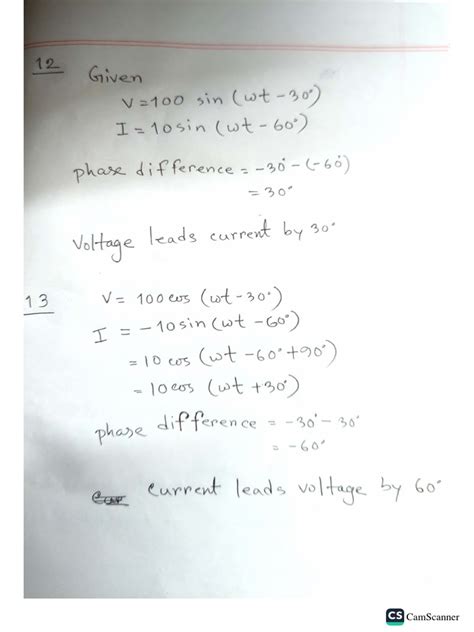 12 Given
V=100 sin (ωt-30°)
I = 10sin (ωt-60°)
phase difference = -30°-(-60°)
= 30°
Voltage leads current by 30°
13 V= 100cos (ωt-30°)
I = -10sin (ωt-60°)
= 10 cos (ωt-60°+90°)
= 10cos (ωt+30°)
phase difference = -30°-30°
= -60°
current leads voltage by 60°
CS CamScanner